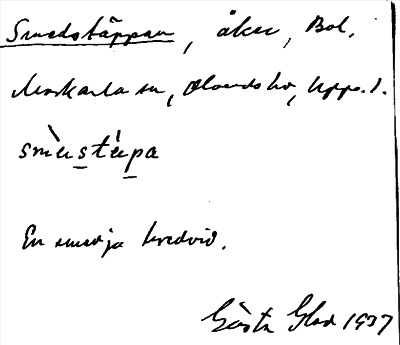 Smedstäppan, åker, Bol,
Morkarla sn, Olands hd, Uppl.
smèestépa
En smedja bredvid.
Gösta Glad 1937